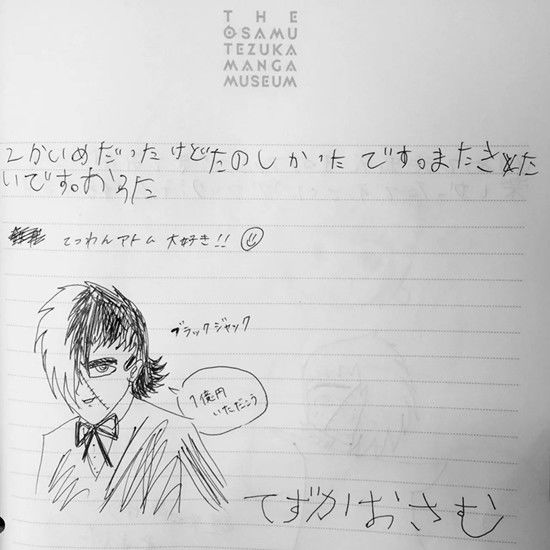 THE
OSAMU
TEZUKA
MANGA
MUSEUM
2かいめだったけどたのしかったです。またきた
いです。おうた
てつわんアトム 大好き!!
ブラックジャック
1億円
いただこう
てずかおさむ